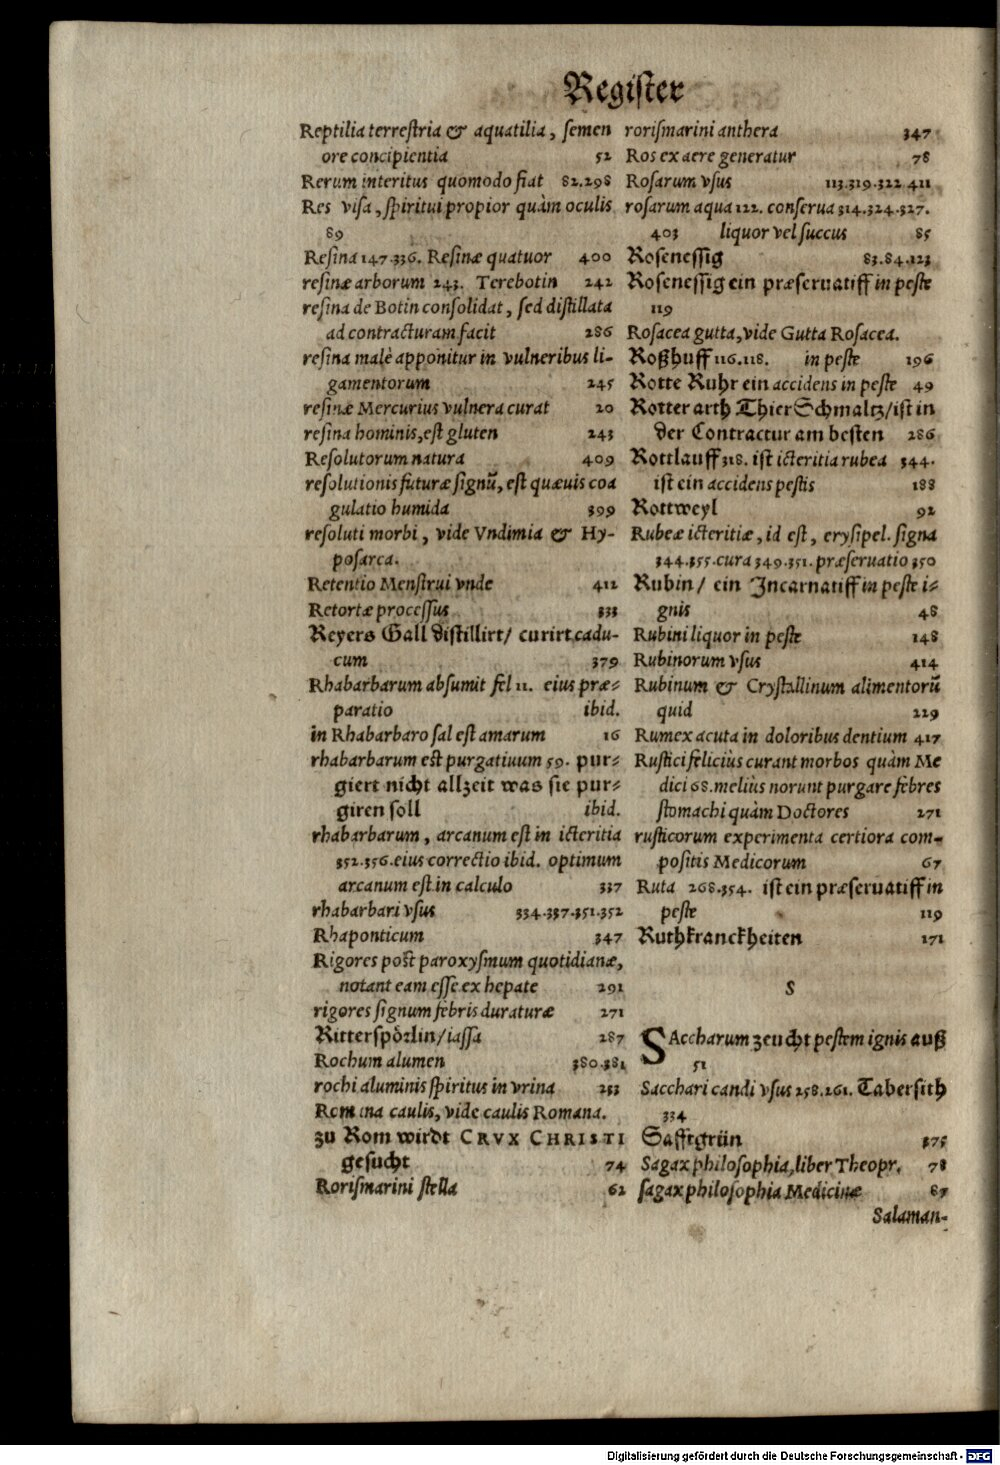 Register
Reptilia terreſtria & aquatilia, ſemen
ore concipientia 52
Rerum interitus quomodo fiat 82.298
Res viſa, ſpiritui propior quàm oculis
89
Reſina 147.336. Reſinæ quatuor 400
reſinæ arborum 243. Terebotin 242
reſina de Botin conſolidat, ſed diſtillata
ad contracturam facit 286
reſina malè apponitur in vulneribus li-
gamentorum 245
reſinæ Mercurius vulnera curat 20
reſina hominis, eſt gluten 243
Reſolutorum natura 409
reſolutionis futuræ ſignũ, eſt quæuis coa
gulatio humida 399
reſoluti morbi, vide Vndimia & Hy-
poſarca.
Retentio Menſtrui vnde 412
Retortæ proceſſus 333
Reyers Gall diſtillirt/ curirt cadu-
cum 379
Rhabarbarum abſumit fel 11. eius præ-
paratio ibid.
in Rhabarbaro ſal eſt amarum 16
rhabarbarum est purgatiuum 59. pur-
giert nicht allzeit was ſie pur-
giren ſoll ibid.
rhabarbarum, arcanum eſt in icteritia
352.356. eius correctio ibid. optimum
arcanum eſt in calculo 337
rhabarbari vſus 334.337.351.352
Rhaponticum 347
Rigores poſt paroxyſmum quotidianæ,
notant eam eſſe ex hepate 291
rigores ſignum febris duraturæ 271
Ritterſpörlin/iaſſa 287
Rochum alumen 380.381
rochi aluminis ſpiritus in vrina 233
Romana caulis, vide caulis Romana.
zu Rom wirdt CRVX CHRISTI
geſucht 74
Roriſmarini ſtella 62
roriſmarini anthera 347
Ros ex aere generatur 78
Roſarum vſus 113.319.322.411
roſarum aqua 122. conſerua 314.324.327.
403 liquor vel ſuccus 85
Roſeneſſig 83.84.123
Roſeneſſig ein præſeruatiff in peſte
119
Roſacea gutta, vide Gutta Roſacea.
Roßhuff 116.118. in peſte 196
Rotte Ruhr ein accidens in peſte 49
Rotter arth Thier Schmaltz/iſt in
der Contractur am beſten 286
Rottlauff 318. iſt icteritia rubea 344.
iſt ein accidens peſtis 188
Rottweyl 92
Rubeæ icteritiæ, id eſt, eryſipel. ſigna
344.355. cura 349.351. præſeruatio 350
Rubin/ ein Incarnatiff in peſte i-
gnis 48
Rubini liquor in peſte 148
Rubinorum vſus 414
Rubinum & Cryſtallinum alimentorũ
quid 229
Rumex acuta in doloribus dentium 417
Ruſtici feliciùs curant morbos quàm Me
dici 68. meliùs norunt purgare febres
ſtomachi quàm Doctores 271
ruſticorum experimenta certiora com-
poſitis Medicorum 67
Ruta 268.354. iſt ein præſeruatiff in
peſte 119
Ruthkranckheiten 171
S
SAccharum zeucht peſtem ignis auß
51
Sacchari candi vſus 258.261. Taberſith
334
Safftgrün 375
Sagax philoſophia, liber Theopr. 78
ſagax philoſophia Medicinæ 87
Salaman-
Digitalisierung gefördert durch die Deutsche Forschungsgemeinschaft - DFG